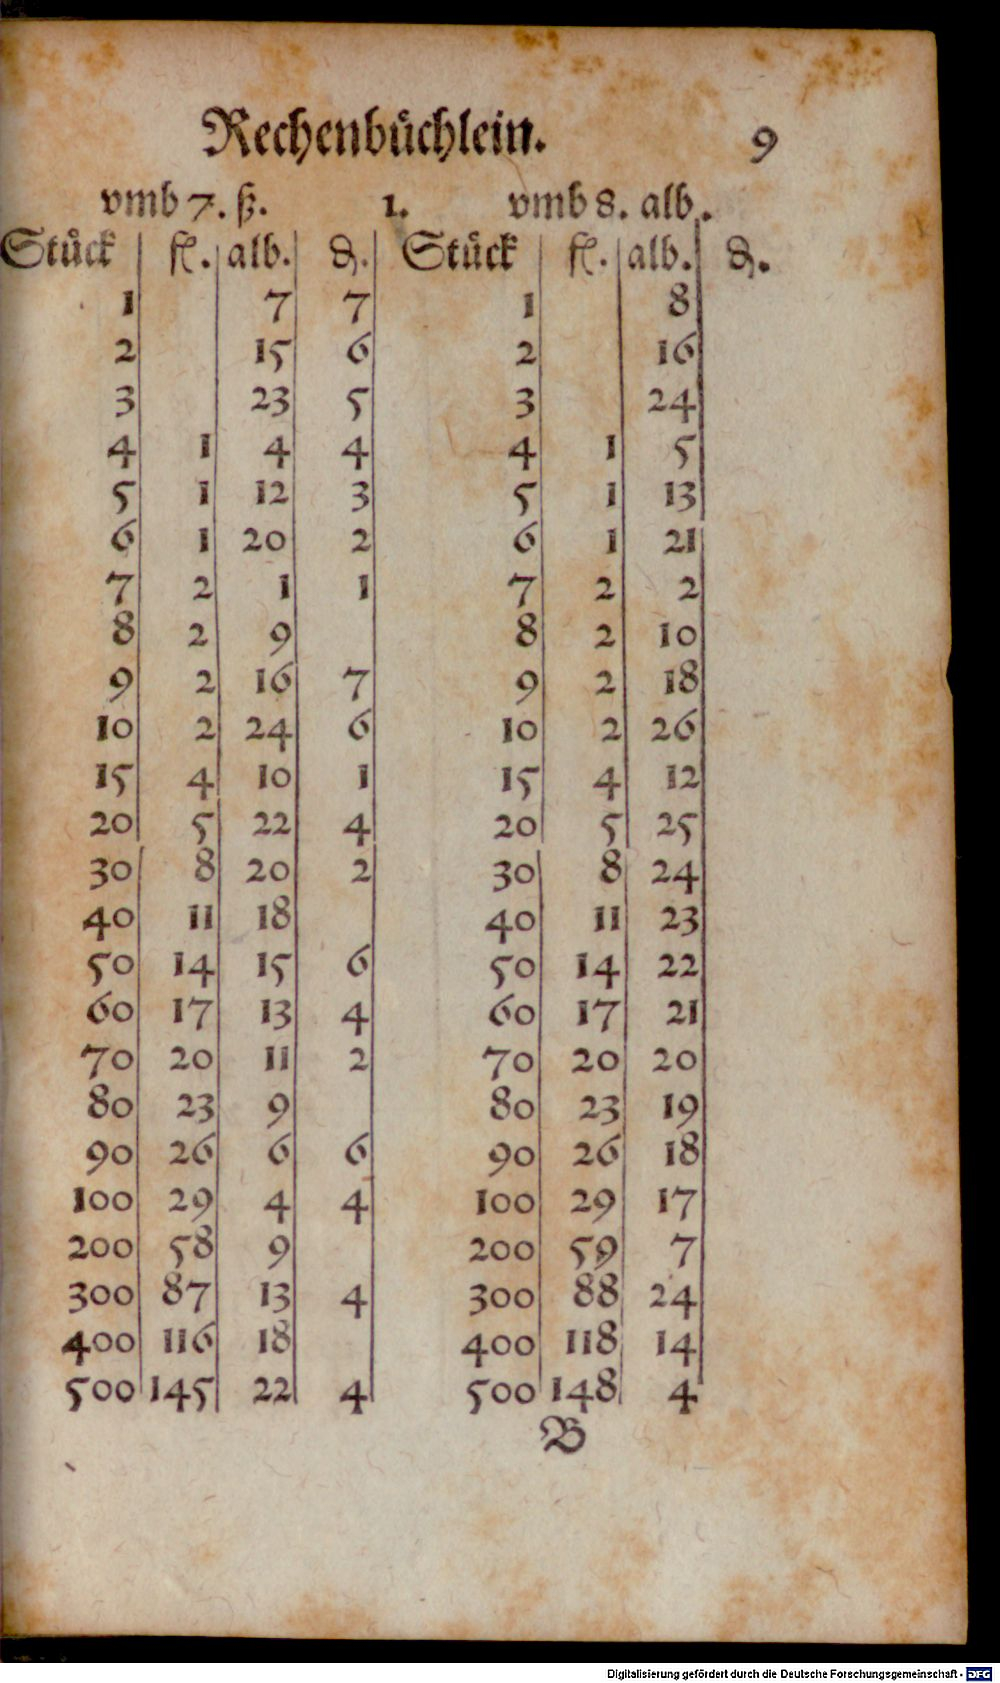 Rechenbůchlein. 9
vmb 7. ß. 1. vmb 8. alb.
Stůck fl. alb. ₰. Stůck fl. alb. ₰.
1 7 7 1 8
2 15 6 2 16
3 23 5 3 24
4 1 4 4 4 1 5
5 1 12 3 5 1 13
6 1 20 2 6 1 21
7 2 1 1 7 2 2
8 2 9 8 2 10
9 2 16 7 9 2 18
10 2 24 6 10 2 26
15 4 10 1 15 4 12
20 5 22 4 20 5 25
30 8 20 2 30 8 24
40 11 18 40 11 23
50 14 15 6 50 14 22
60 17 13 4 60 17 21
70 20 11 2 70 20 20
80 23 9 80 23 19
90 26 6 6 90 26 18
100 29 4 4 100 29 17
200 58 9 200 59 7
300 87 13 4 300 88 24
400 116 18 400 118 14
500 145 22 4 500 148 4
B
Digitalisierung gefördert durch die Deutsche Forschungsgemeinschaft - DFG